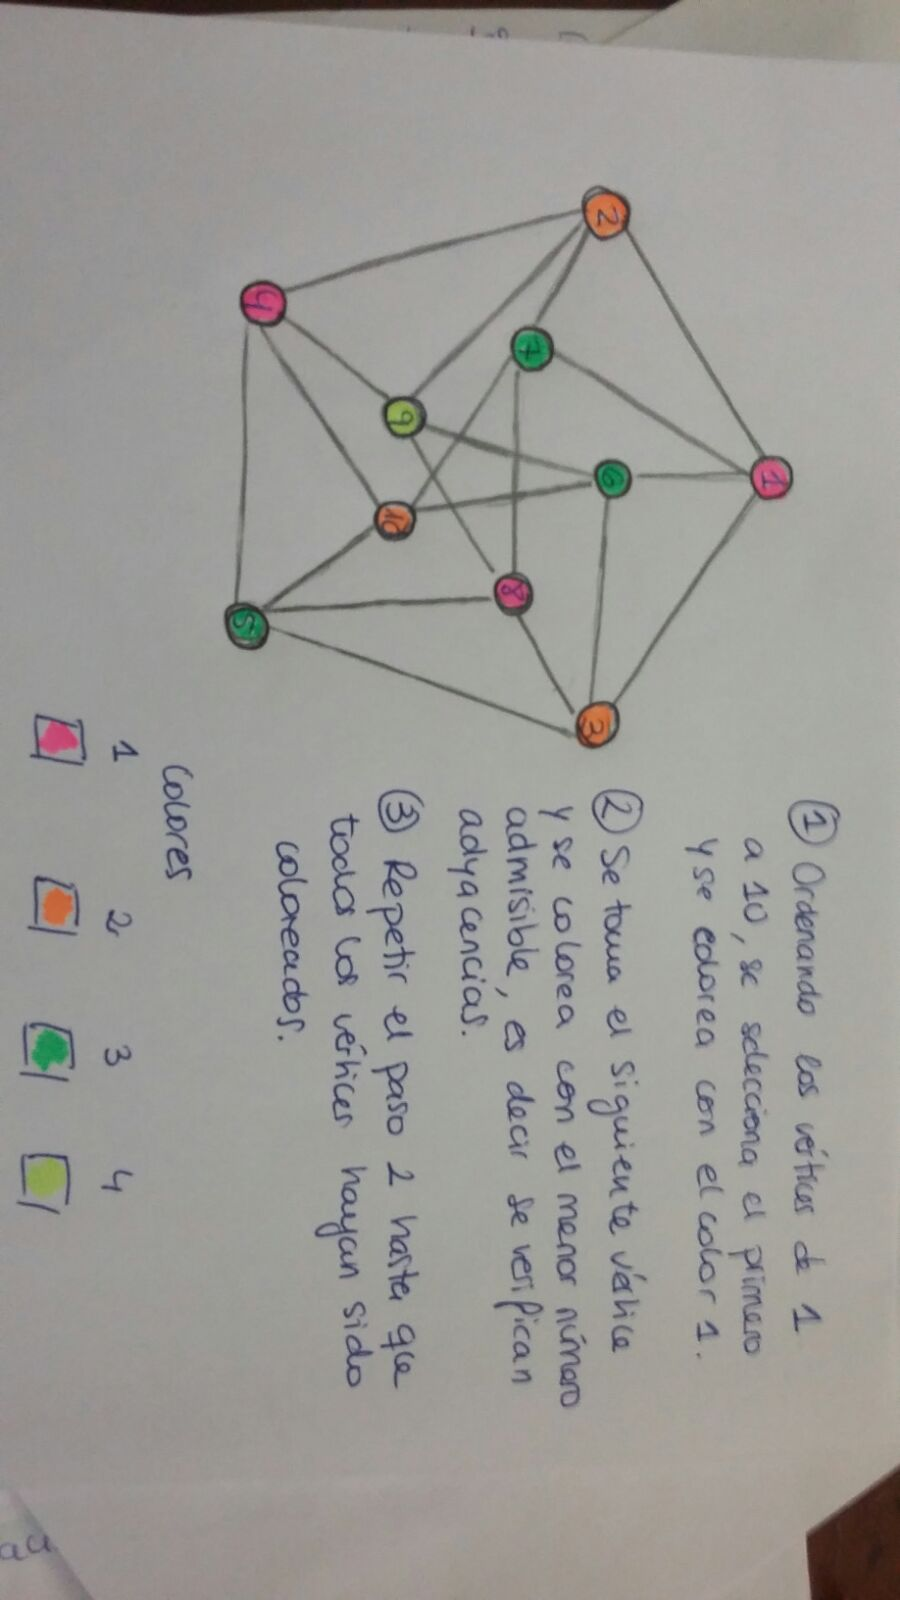 1
2
7
6
3
9
8
4
10
5
① Ordenando los vértices de 1
a 10, se selecciona el primero
y se colorea con el color 1.
② Se toma el siguiente vértice
y se colorea con el menor número
admisible, es decir se verifican
adyacencias.
③ Repetir el paso 2 hasta que
todos los vértices hayan sido
coloreados.
Colores
1 2 3 4